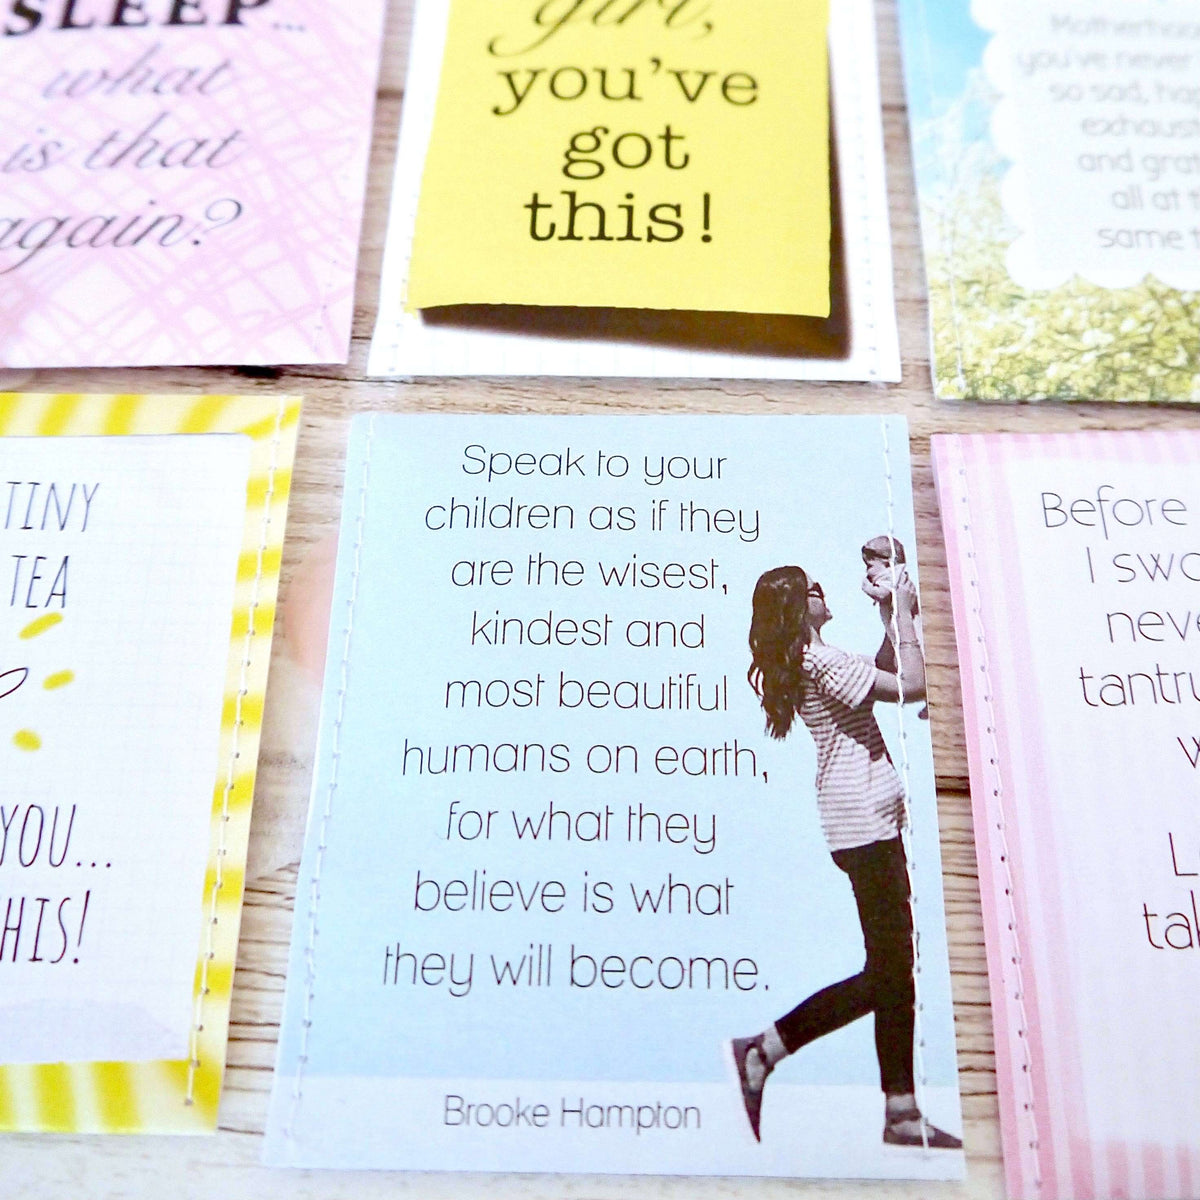 SLEEP...
what
is that
again?
girl,
you've
got
this!
Motherhood
you've never
so sad, 
and
all at
same
TINY
TEA
YOU...
THIS!
Speak to your
children as if they
are the wisest,
kindest and
most beautiful
humans on earth,
for what they
believe is what
they will become.
Brooke Hampton
Before
I
L